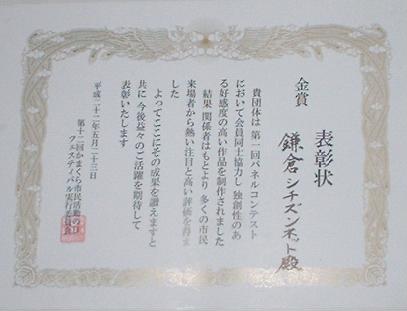 表彰状
金賞
鎌倉シチズンネット殿
貴団体は 第一回パネルコンテスト
において会員同士協力し 独創性のあ
る好感度の高い作品を制作されました
結果 関係者はもとより 多くの市民
来場者から熱い注目と高い評価を得ま
した
よってここにその成果を讃えますと
共に 今後益々のご活躍を期待して
表彰いたします
平成二十二年五月二十三日
第十二回かまくら市民活動の日
フェスティバル実行委員会